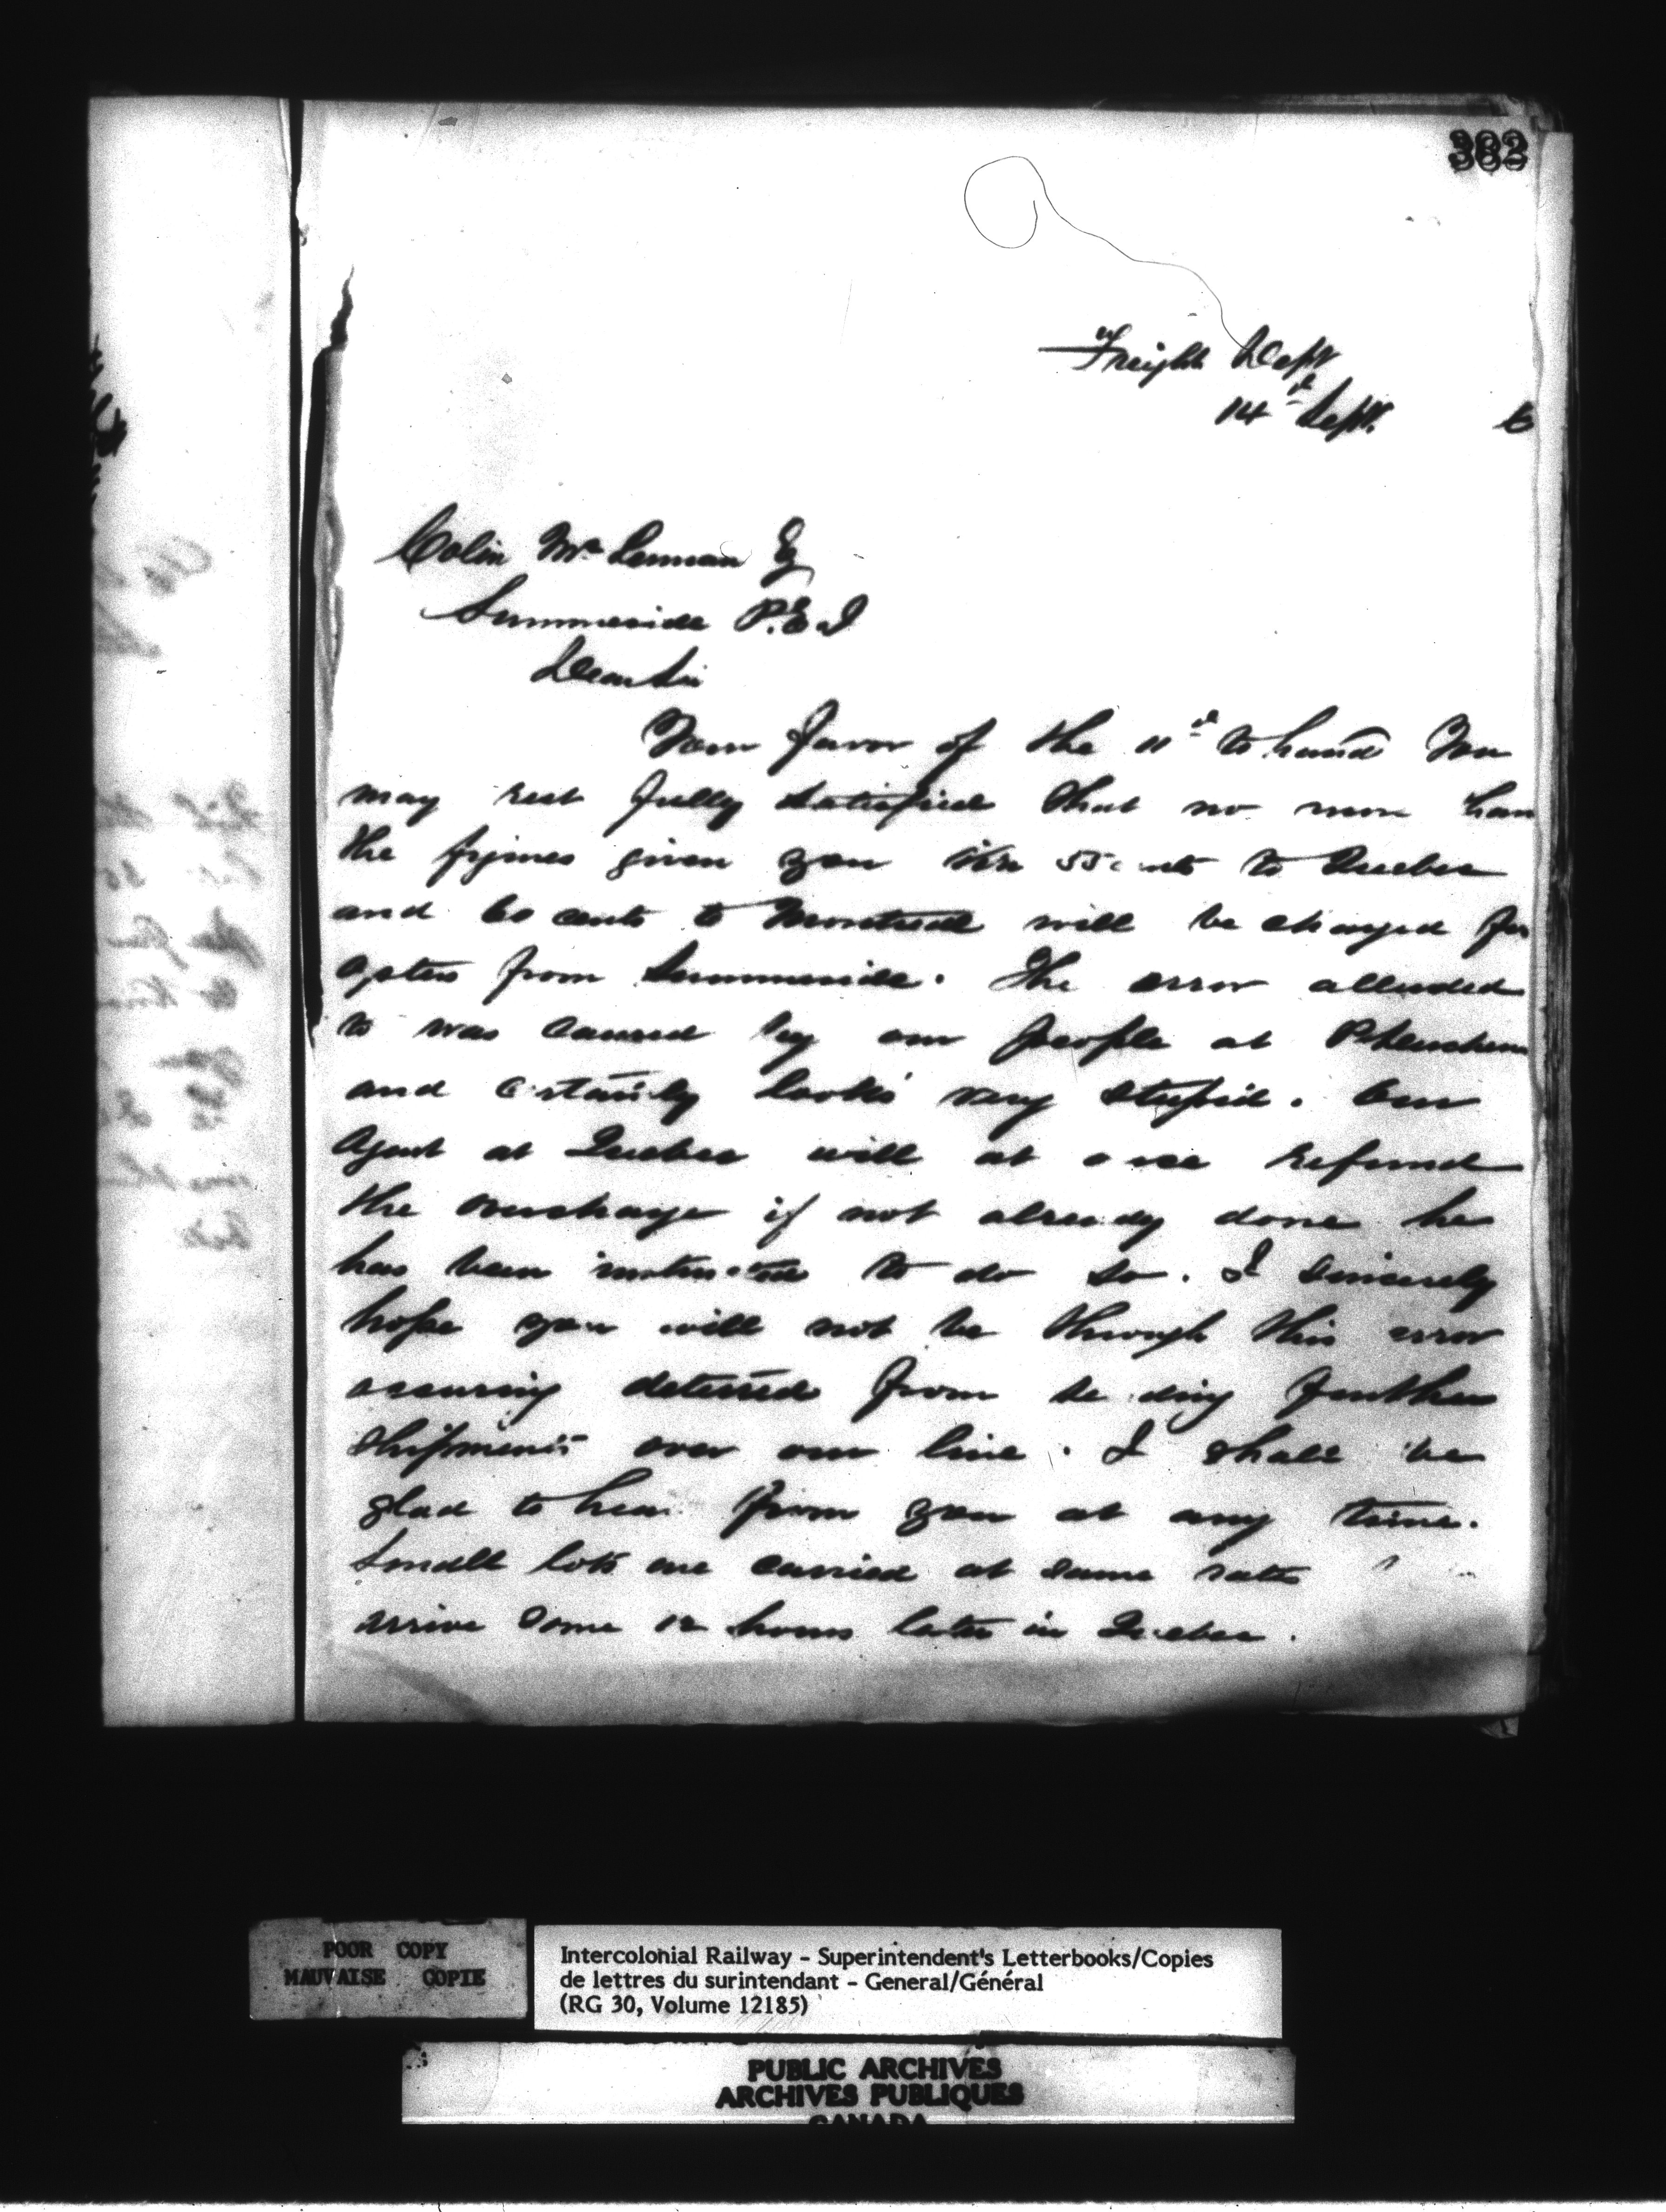 382
Freight Dept
14th Sept. 6
Colin McLennan Eq
Summerside P.E.I
Dear Sir
Your favor of the 11th to hand You
may rest fully satisfied that no more than
the figures given you viz 55 cents to Quebec
and 60 cents to Montreal will be charged for
oysters from Summerside. The error alluded
to was caused by our people at Pt Duchene
and certainly looks very stupid. Our
Agent at Quebec will at once refund
the overcharge if not already done he
has been instructed to do so. I sincerely
hope you will not be through this error
occuring deterred from sending further
shipments over our line. I shall be
glad to hear from you at any time.
Small lots are carried at same rates
arrive some 12 hours later in Quebec.
POOR COPY
MAUVAISE COPIE
Intercolonial Railway - Superintendent's Letterbooks/Copies
de lettres du surintendant - General/Général
(RG 30, Volume 12185)
PUBLIC ARCHIVES
ARCHIVES PUBLIQUES
CANADA